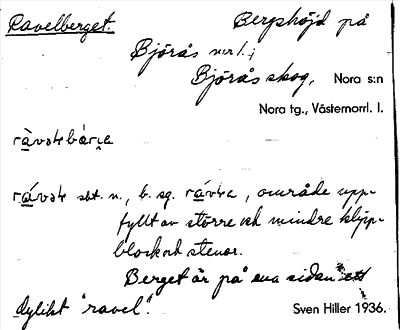 Ravelberget. Bergshöjd på
Björås
Björås skog, Nora s:n
Nora tg., Västernorrl. l.
sbt. n., b. sg. , område upp-
fyllt av större och mindre klipp-
block och stenar.
Berget är på ena sidan ett
dylikt "ravel".
Sven Hiller 1936.